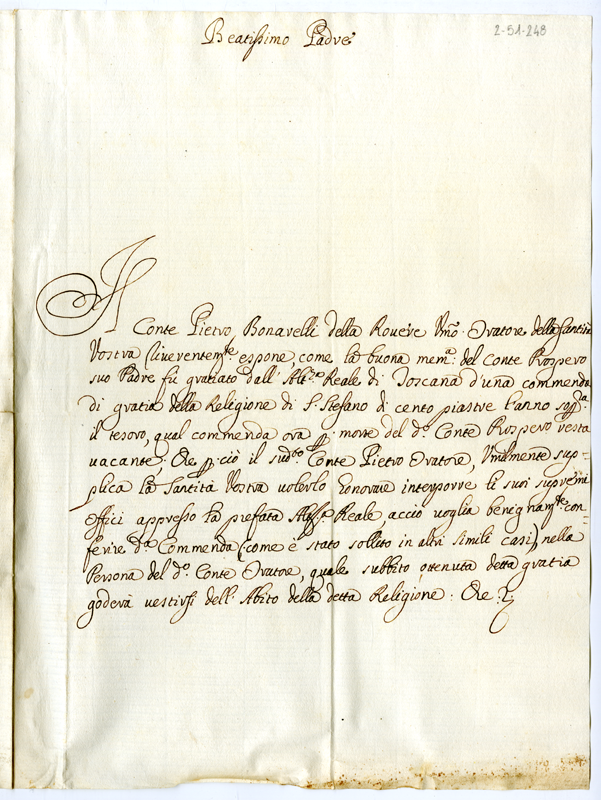 2-51-248
Beatissimo Padre
Il
Conte Pietro Bonarelli della Rovere Umo. Oratore della Santità
Vostra riverentemte. espone, come la buona mema. del Conte Prospero
suo Padre fù gratiato dall' Altza. Reale di Toscana d'una commenda
di gratia della Religione di S. Stefano di cento piastre l'anno sopa.
il tesoro, qual commenda ora p morte del do. Conte Prospero resta
vacante; Che p ciò il sudto. Conte Pietro Oratore, Umilmente sup=
plica la Santità Vostra volerlo honorare interporre li suoi supremi
offici appresso la prefata Altza. Reale, acciò voglia benignamte. con=
ferire da. Commenda (come è stato solito in altri simili casi) nella
Persona del do. Conte Oratore, quale subbito ottenuta detta gratia
goderà vestirsi dell' Abito della detta Religione. Che